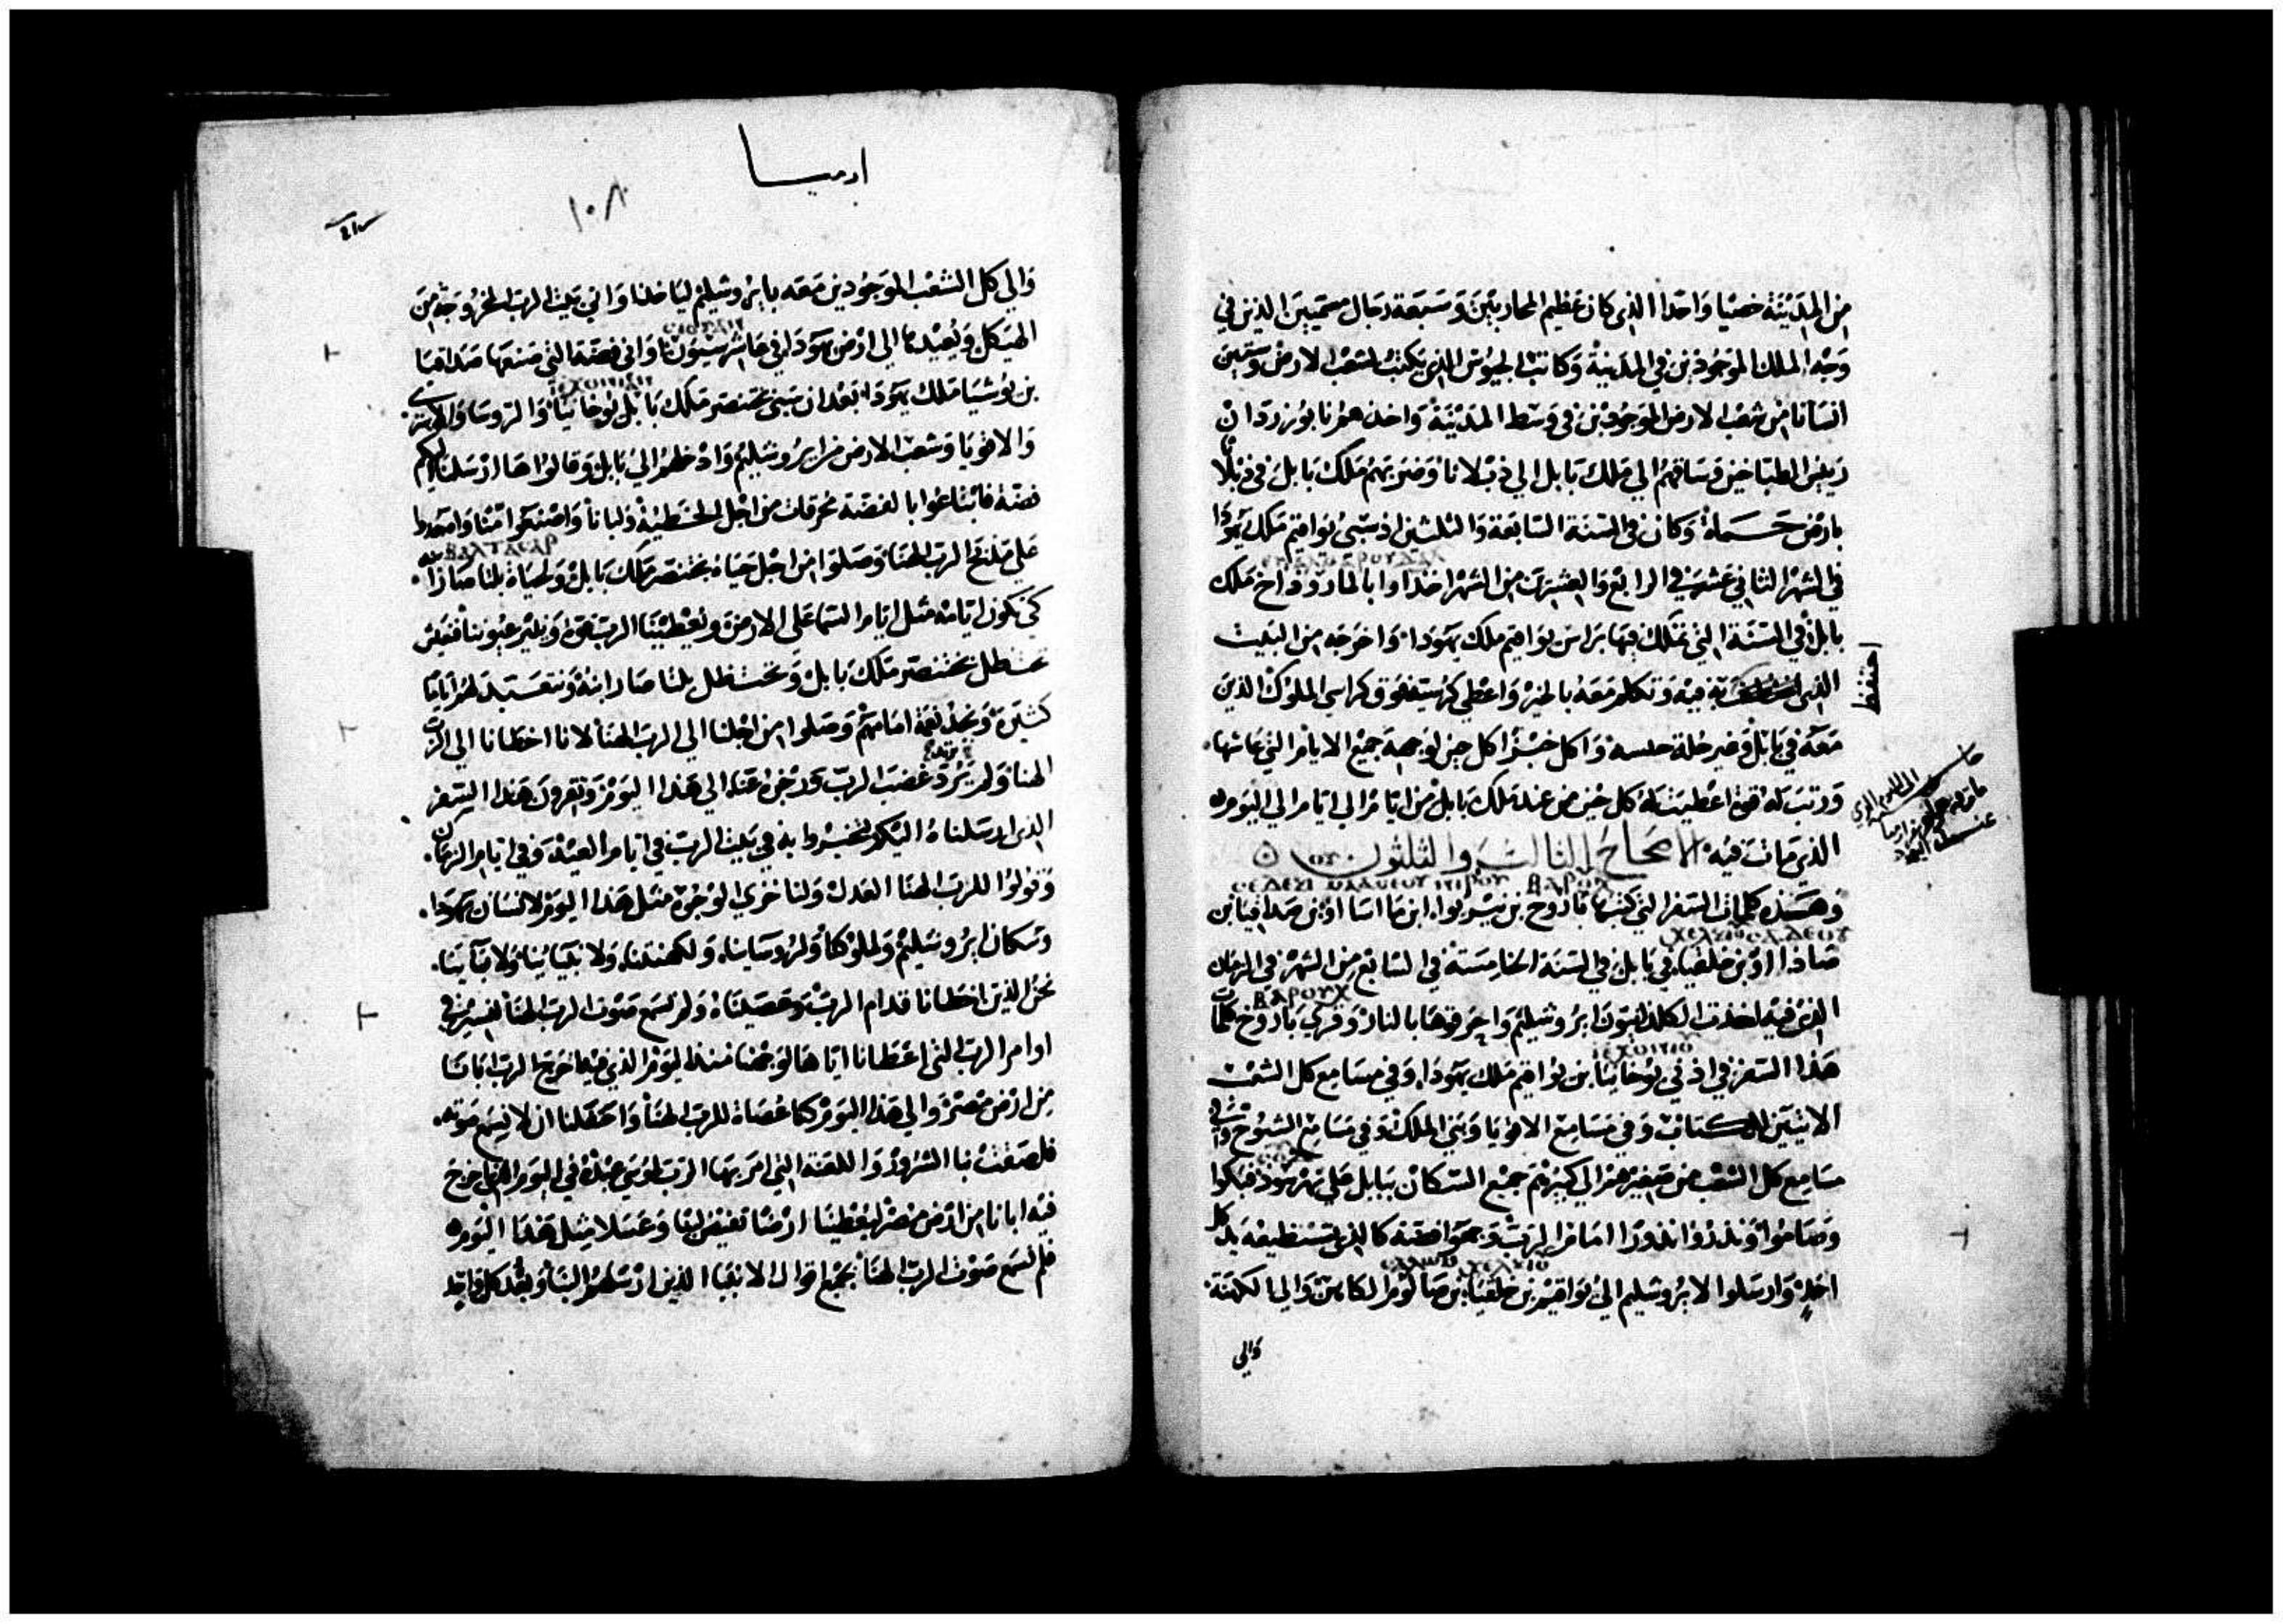 من المدينة خصيا واحدا الذي كان عظيم المحاربين وسبعة رجال مسميين الذين في
وجه الملك الموجودين في المدينة وكاتب الجيوش الذي يكتب لشعب الارض وستين
انسانا من شعب الارض الموجودين في وسط المدينة واخذهم نابوزردان
رييس الطباخين وساقهم الي ملك بابل الي دبلاتا وضربهم ملك بابل في دبلاتا
بارض حماة وكان في السنة السابعة والثلثين اذ سبي يواقيم ملك يهودا
في الشهر الثاني عشر في الرابع والعشرين من الشهر اخذ اوابالمارودداخ ملك
بابل في السنة التي تملك فيها براس يواقيم ملك يهودا واخرجه من البيت
احتفظ
الذي فيه وتكلم معه بالخير واعطي كرسيه فوق كراسي الملوك الذين
معه في بابل وغير حلة حبسه واكل خبزا كل حين لوجهه جميع الايام التي عاشها
ورتب له قوة اعطيت له كل حين من عند ملك بابل من ايام الي ايام الي اليوم
الذي مات فيه الاصحاح الثالث والثلثون
ⲥⲉⲇⲉⲕⲓ ⲙⲁⲁⲥⲉⲟⲩ ⲛⲓⲣⲟⲩ ⲃⲁⲣⲟⲩⲭ
وهذه كلمات السفر التي كتبها باروخ بن نيريوا ابن مااسااو بن صداقيا بن
ⲭⲉⲗⲕⲓⲟⲩ ⲥⲁⲇⲉⲟⲩ
صاذااو بن خلقيا في بابل في السنة الخامسة في السابع من الشهر في الزمان
ⲃⲁⲣⲟⲩⲭ
الذي فيه اخذت الكلدانيون ايروشليم واحرقوها بالنار وقري باروخ كلمات
ⲓⲉⲭⲟⲛⲓⲟ
هذا السفر في اذني يوخانيا بن يواقيم ملك يهودا وفي مسامع كل الشعب
الاتيين للكتاب وفي مسامع الاقويا وبني الملك وفي مسامع الشيوخ وفي
مسامع كل الشعب من صغيرهم الي كبيرهم جميع السكان ببابل علي نهر هود فبكوا
وصاموا ونذروا نذورا امام الرب وجمعوا فضة كالذي تستطيعه يد كل
ⲥⲁⲗⲱⲙ ⲭⲉⲗⲕⲓⲟ
احد وارسلوا لايروشليم الي يواقيم بن خلقيا بن صالوم الكاهن والي الكهنة
والي
ارميا
١٠٨
والي كل الشعب الموجودين معه بايروشليم
الهيكل ويعيدها الي ارض يهودا في عاشر سيوان اواني فضة التي صنعها صداقيا
ⲓⲉⲭⲟⲛⲓⲁⲛ
بن يوشيا ملك يهودا بعد ان سبي بختنصر ملك بابل يوخانيا والروسا
والاقويا وشعب الارض من ايروشليم وادخلهم الي بابل وقالوا ها ارسلنا اليكم
فضة فابتاعوا بالفضة محرقات من اجل الخطية ولبانا واصنعوا منا واصعدوا
ⲃⲁⲗⲧⲁⲥⲁⲣ
علي مذبح الرب الهنا وصلوا من اجل حياة بختنصر ملك بابل ولحياة بلتاصار ابنه
كي تكون ايامه مثل ايام السما علي الارض ويعطينا الرب قوة وينير عيوننا فنعيش
تحت ظل بختنصر ملك بابل وتحت ظل بلتاصار ابنه ونتعبد لهم اياما
كثيرة ونجد نعمة امامهم وصلوا من اجلنا الي الرب الهنا لانا اخطانا الي الرب
الهنا ولم يرد غضب الرب ورجزه عنا الي هذا اليوم وتقرون هذا السفر
الذي ارسلناه اليكم لتخبروا به في بيت الرب في ايام العيد وفي ايام الزمان
وتقولوا للرب الهنا العدل ولنا خزي الوجوه مثل هذا اليوم لانسان يهودا
وسكان ايروشليم ولملوكنا ولروساينا ولكهنتنا ولانبياينا ولاباينا
نحن الذين اخطانا قدام الرب وعصيناه ولم نسمع صوت الرب الهنا لنسير في
اوامر الرب التي اعطانا اياها لوجهنا منذ اليوم الذي فيه اخرج الرب ابانا
من ارض مصر والي هذا اليوم كنا عصاة للرب الهنا واحتفلنا ان لا نسمع صوته
فلصقت بنا الشرور واللعنة التي امر بها الرب لموسي عبده في اليوم الذي اخرج
فيه ابانا من ارض مصر ليعطينا ارضا تفيض لبنا وعسلا مثل هذا اليوم
فلم نسمع صوت الرب الهنا بجميع اقوال الانبيا الذين ارسلهم الينا وبعد كل واحد